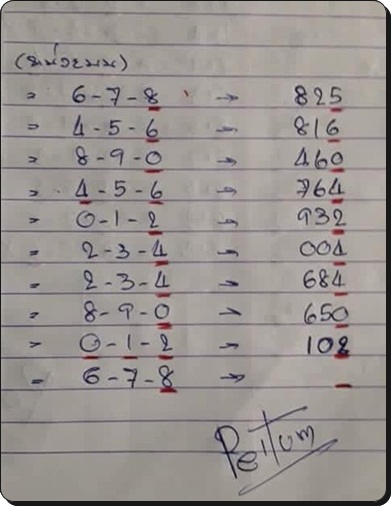 = 6-7-8 → 825
= 4-5-6 → 816
= 8-9-0 → 460
= 4-5-6 → 764
= 0-1-2 → 932
= 2-3-4 → 004
= 2-3-4 → 684
= 8-9-0 → 650
= 0-1-2 → 102
= 6-7-8 →
Peitum